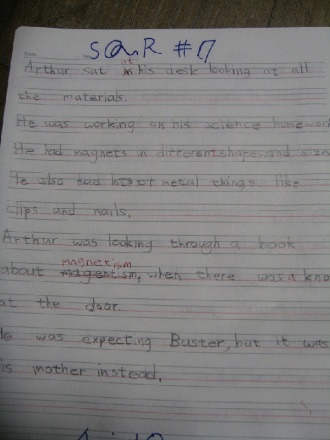 SQUR #17
Arthur sat at his desk looking at all
the materials.
He was working on his science homework
He had magnets in different shapes and size
He also had lots of metal things like
clips and nails.
Arthur was looking through a book
magnetism
about magentism, when there was a kno
at the door.
He was expecting Buster, but it was
is mother instead.